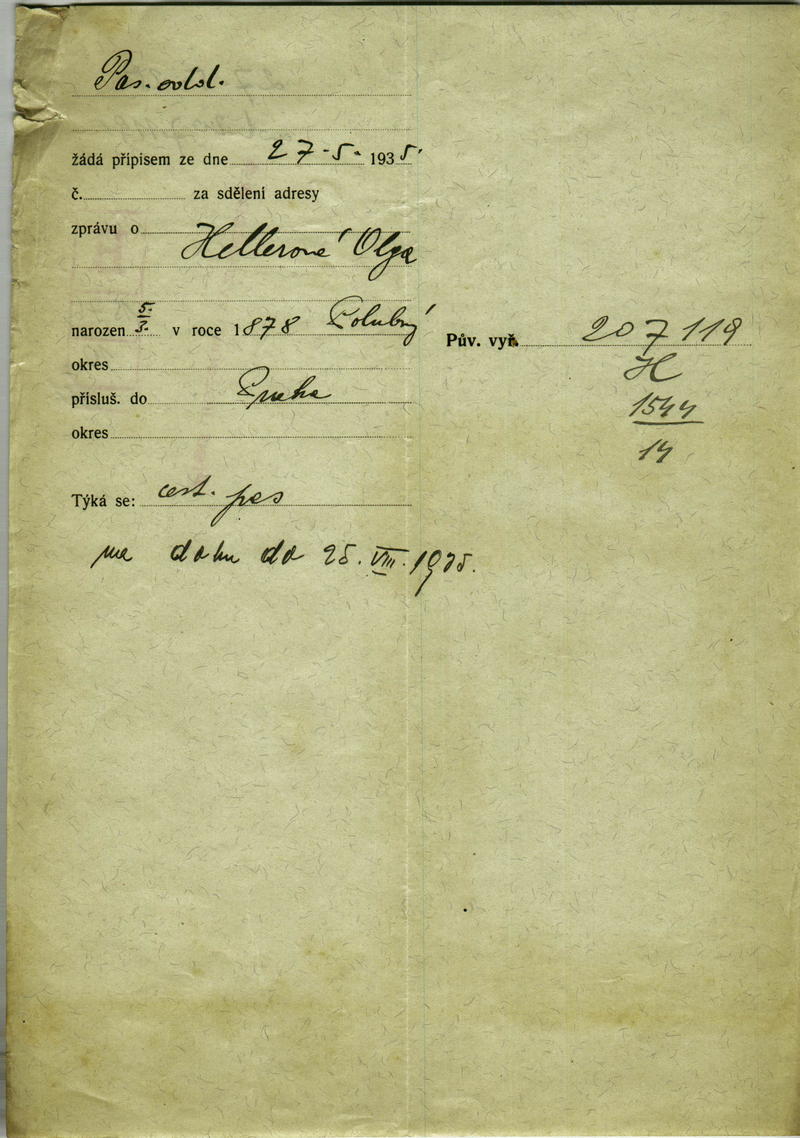 Pas. odd.
žádá přípisem ze dne 27.5. 1935
č. za sdělení adresy
zprávu o
Hellerové Olga
narozen 5./3. v roce 1878 Polubný
okres
přísluš. do Praha
okres
Týká se: cest. pas
na dobu do 25. VIII. 1935.
Pův. vyř. 207119
H
1544
14